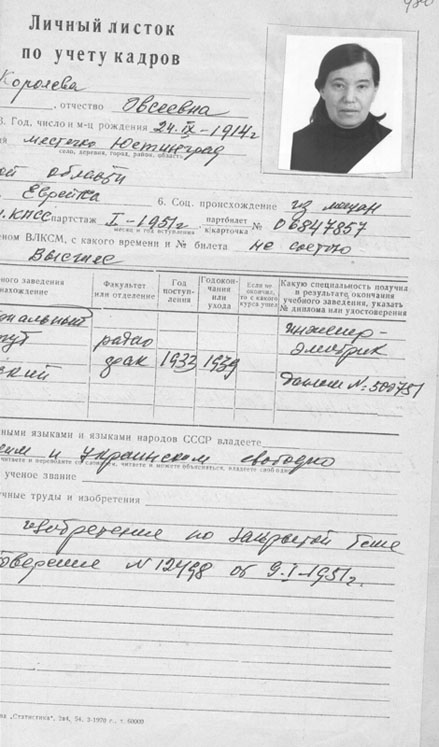 Личный листок
по учету кадров
Королева
, отчество Овсеевна
3. Год, число и м-ц рождения 24.IX-1914г
местечко Юстинград
село, деревня, город, район, область
ой области
Еврейка 6. Соц. происхождение из мещан
КПСС партстаж I-1951г, партбилет к/карточка № 06847857
месяц и год вступления
еном ВЛКСМ, с какого времени и № билета не состою
Высшее
ного заведения
нахождение
Факультет или отделение
Год поступления
Год окончания или ухода
Если не окончил, то с какого курса ушел
Какую специальность получил в результате окончания учебного заведения, указать № диплома или удостоверения
радио
фак 1933 1939
инженер-
электрик
ский
диплом № 500751
ными языками и языками народов СССР владеете
и украинском свободно
читаете и переводите со словарем, читаете и можете объясняться, владеете свободно
ученое звание
учные труды и изобретения
изобретение по закрытой теме
товерение N 12498 от 9.I-1951г.
"Статистика", Зак. 54. 3-1970 г., т. 60000